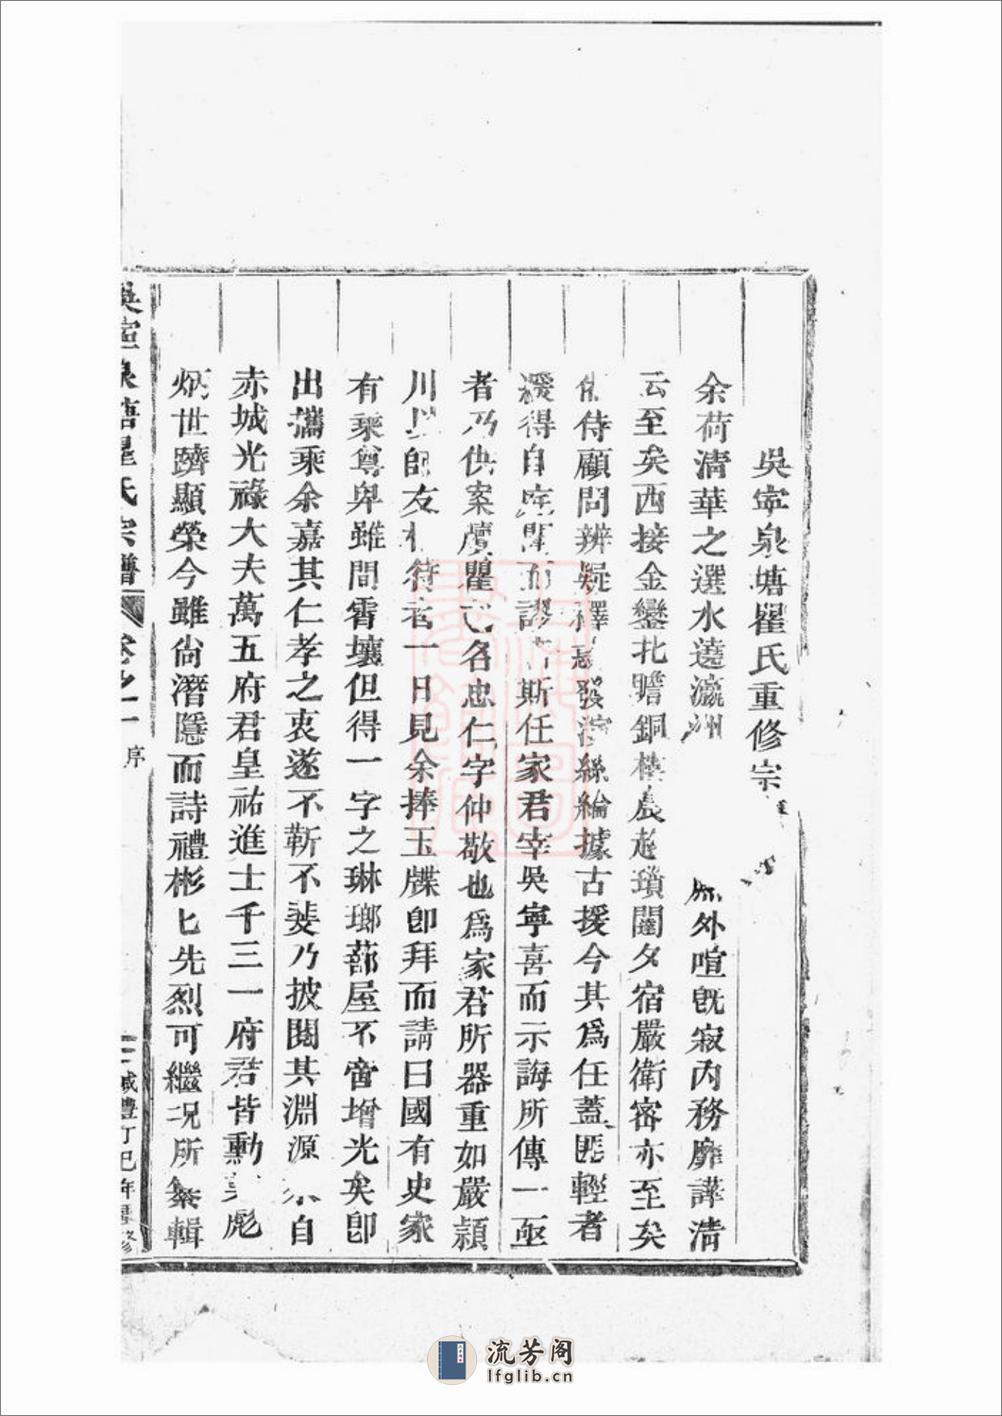 吳寧泉塘瞿氏重修宗譜
余荷清華之選水遶瀛洲 外喧旣寂內務靡譁淸
云至矣西接金鑾北瞻銅 辰趨瑣闥夕宿嚴衛密亦至矣
侍顧問辨疑釋 發 絲綸據古援今其爲任蓋匪輕者
得自 聞而 斯任家君宰吳寧喜而示誨所傳一函
者乃供案 瞿 名忠仁字仲敬也爲家君所器重如嚴潁
川以師友相待者一日見余捧玉牒卽拜而請曰國有史家
有乘尊卑雖間霄壤但得一字之琳瑯蔀屋不啻增光矣卽
出攜乘余嘉其仁孝之衷遂不靳不斐乃披閱其淵源 自
赤城光祿大夫萬五府君皇祐進士千三一府君皆勳 彪
炳世躋顯榮今雖尙潛隱而詩禮彬匕先烈可繼况所纂輯
吳寧泉塘瞿氏宗譜 卷之一 序
咸豐丁巳年重修
流芳阁
lfglib.cn